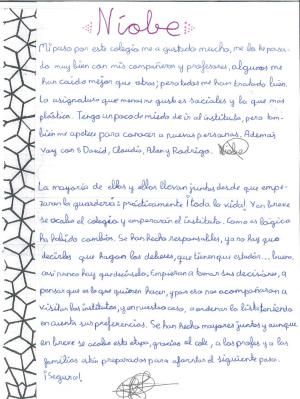 Níobe
Mi paso por este colegio me a gustado mucho, me lo he pasa-
do muy bien con mis compañeros y profesores, algunos me
han caído mejor que otros; pero todos me han tratado bien.
La asignatura que menos me gusta es sociales y la que más
plástica. Tengo un poco de miedo de ir al instituto, pero tam-
bién me apetece para conocer a nuevas personas. Además
voy con David, Claudia, Alan y Rodrigo. Níobe
La mayoría de ellos y ellas llevan juntos desde que empe-
zaron la guardería: prácticamente ¡toda la vida! Y en breve
se acaba el colegio y empezarán el instituto. Como es lógico
ha habido cambios. Se han hecho responsables, ya no hay que
decirles que hagan los deberes, que tienen que estudiar... bueno,
así no nos hay que decírselo. Empiezan a tomar sus decisiones, a
pensar que es lo que quieren hacer, y para eso nos acompañaron a
visitar los institutos, y en nuestro caso, a ordenar la lista teniendo
en cuenta sus preferencias. Se han hecho mayores juntos y aunque
en breve se acabe esta etapa, gracias al cole, a los profes y a las
familias están preparados para afrontar el siguiente paso.
¡Seguro!